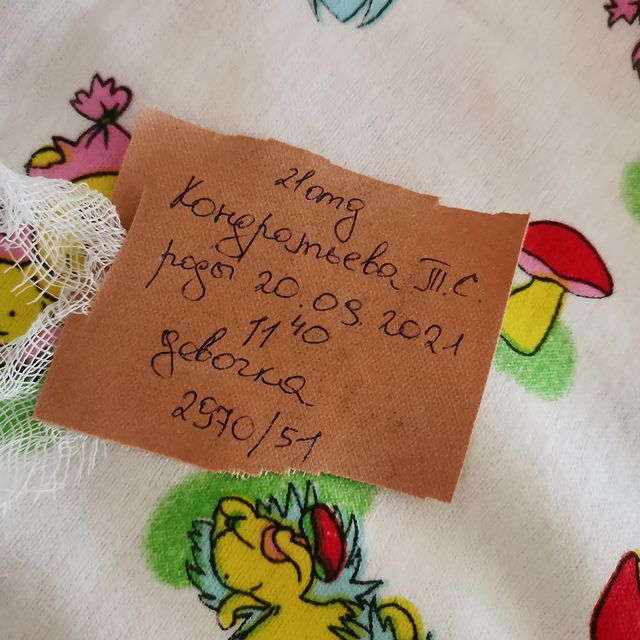 21отд
Кондратьева Т.С.
роды 20.09.2021
11 40
девочка
2970/51